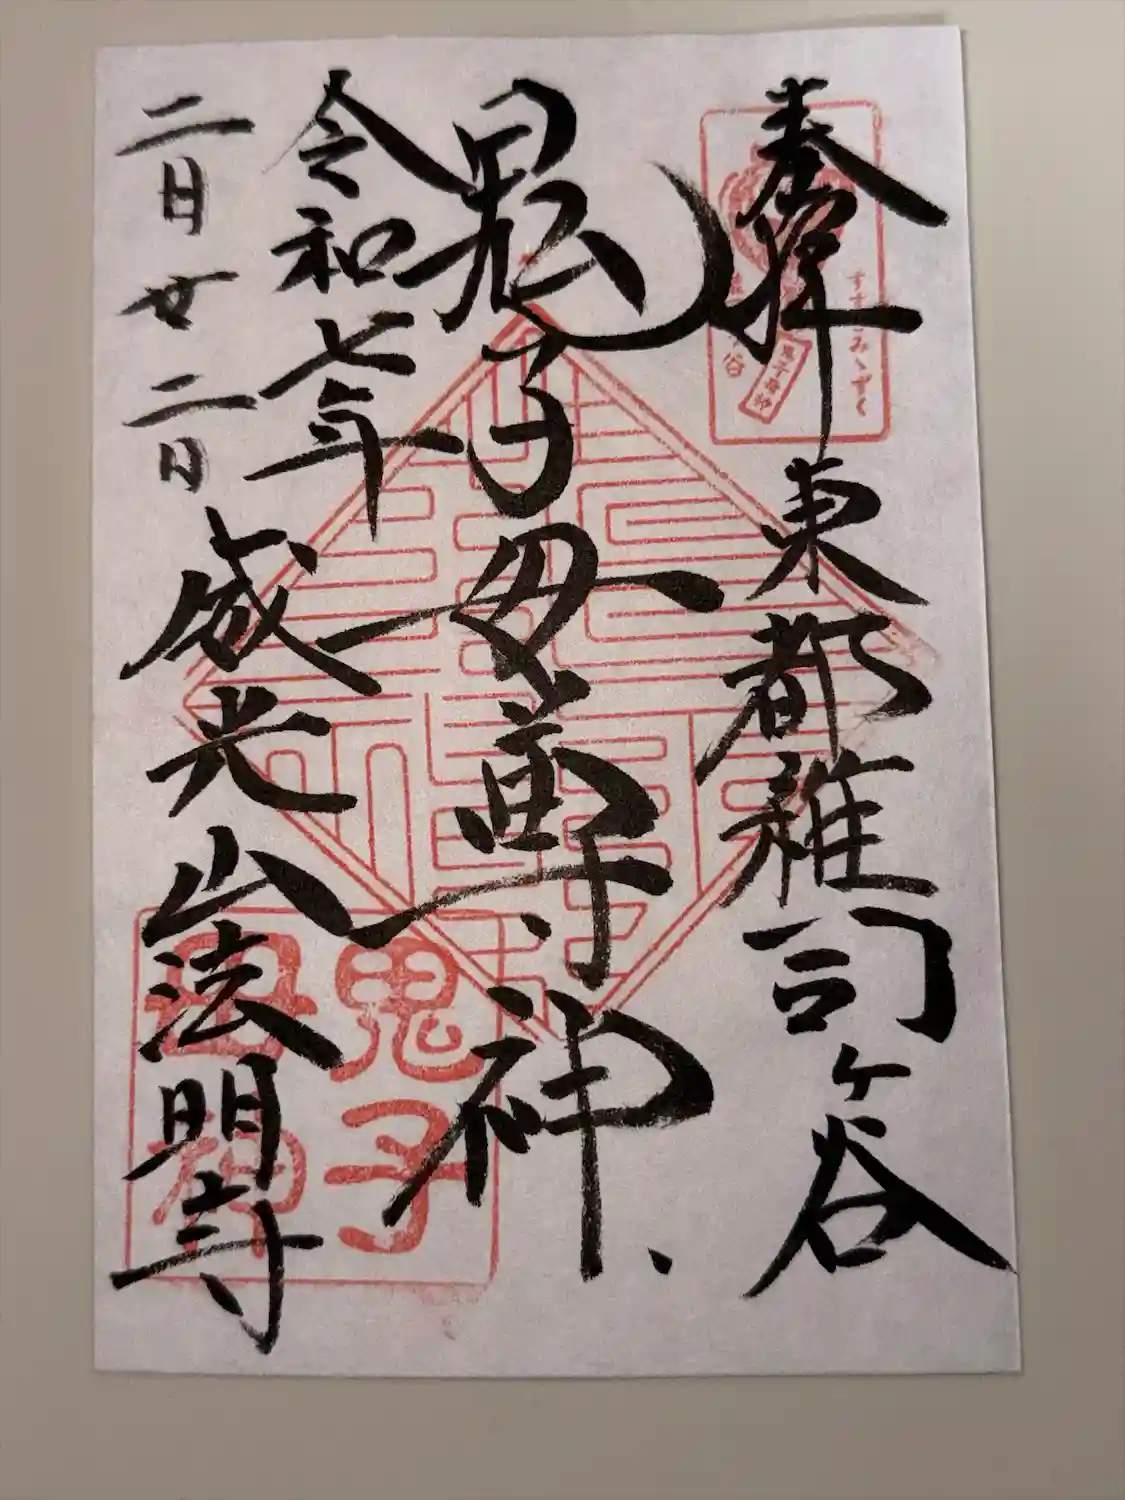 奉拝 東都雑司ヶ谷
鬼子母尊神
令和七年
二月廿二日
威光山法明寺
すすきみゝずく
鬼子母神
鬼子
母神